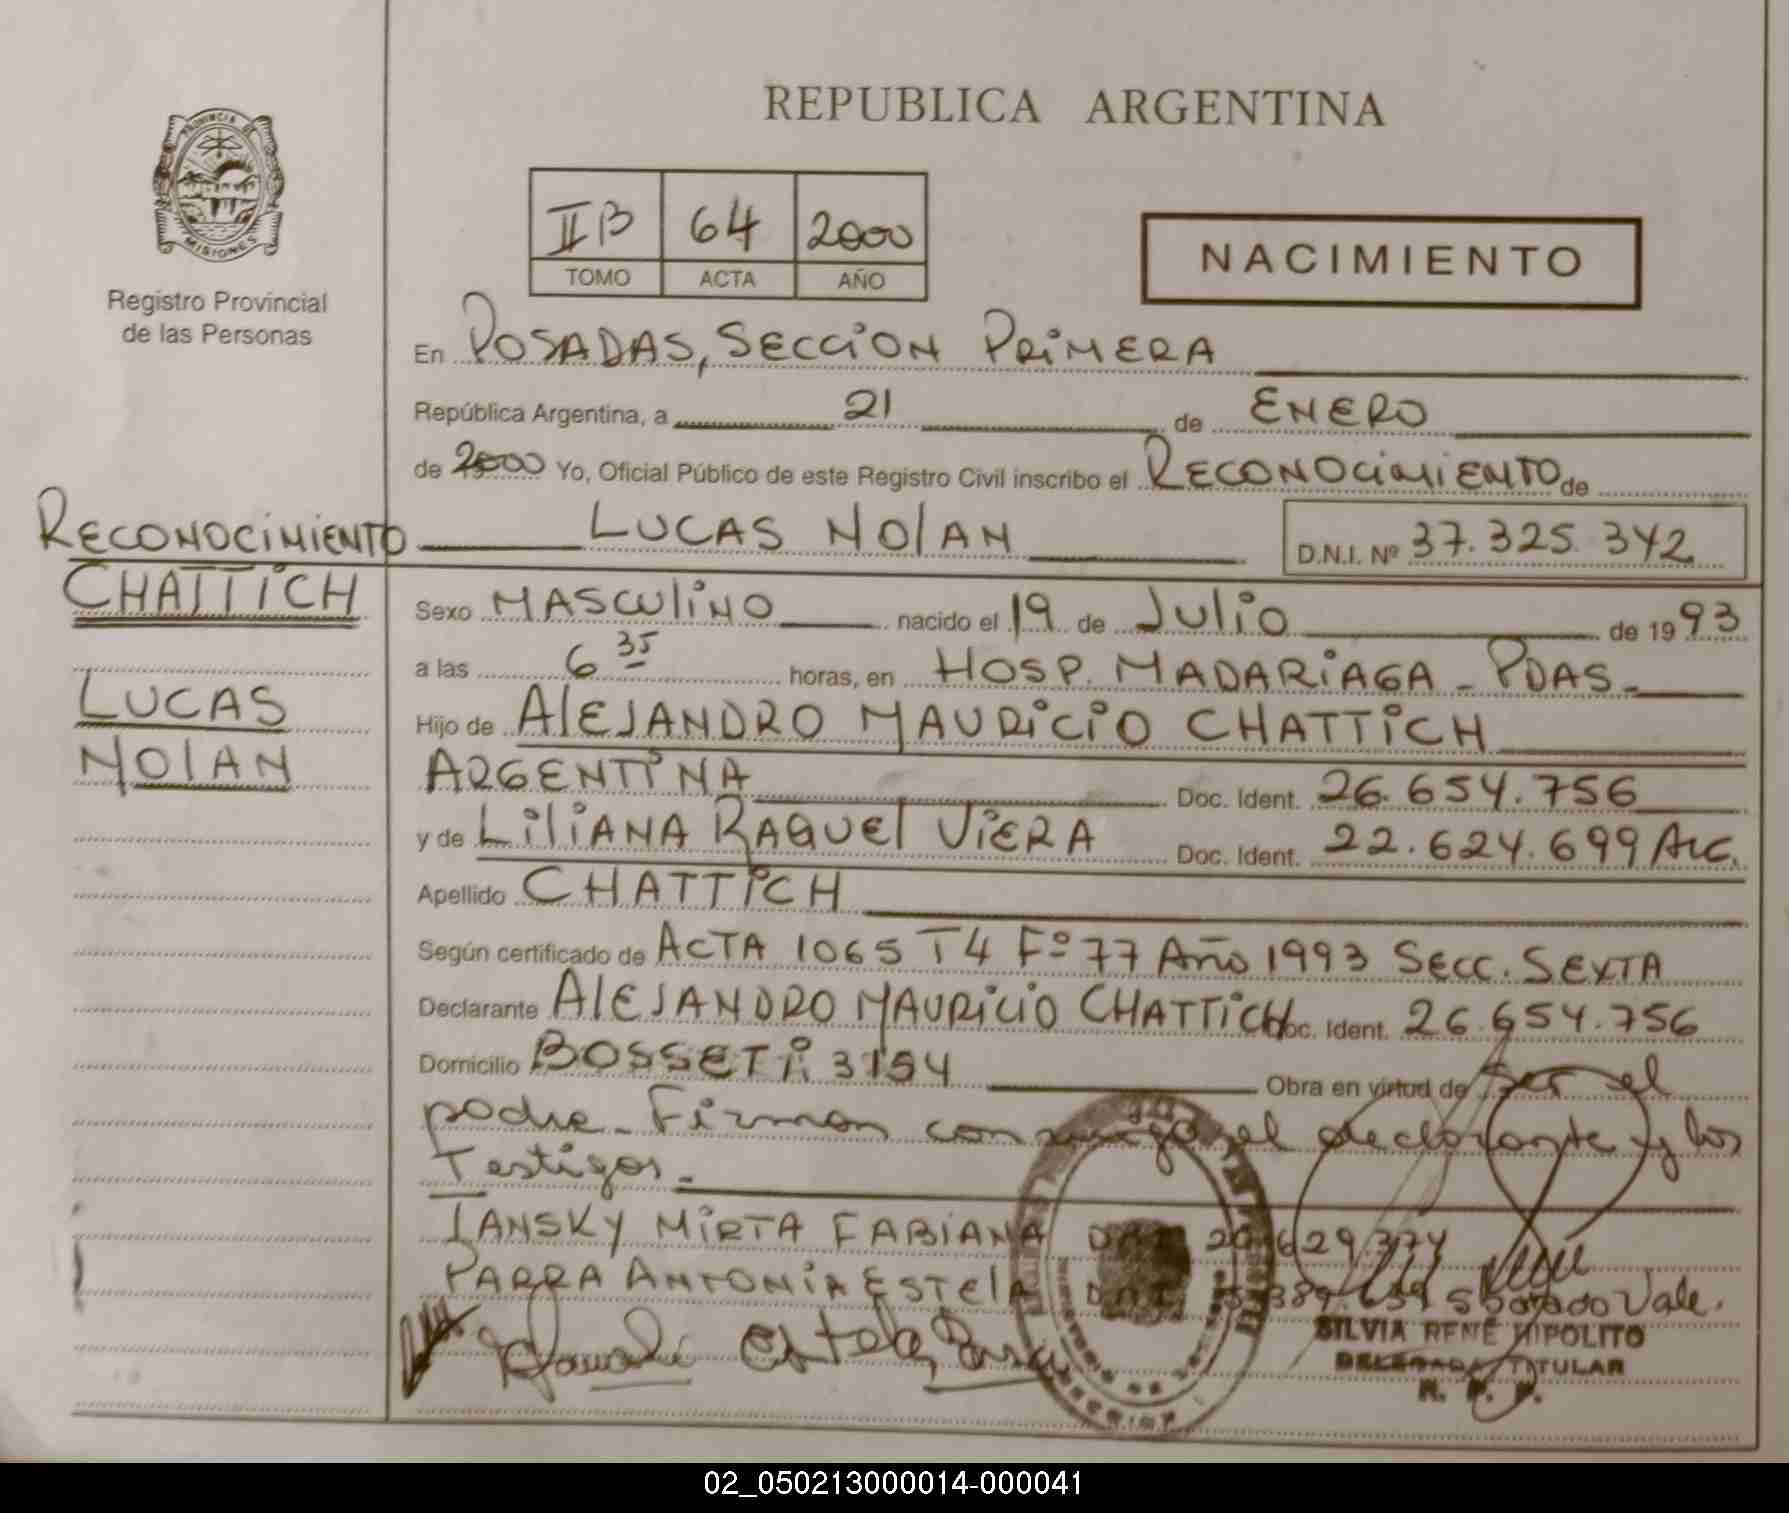 REPUBLICA ARGENTINA
PROVINCIA DE
MISIONES
Registro Provincial
de las Personas
II B 64 2000
TOMO ACTA AÑO
NACIMIENTO
En POSADAS, SECCION PRIMERA
República Argentina, a 21 de ENERO
de 2000 Yo, Oficial Público de este Registro Civil inscribo el RECONOCIMIENTO de
LUCAS NOlAN D.N.I. Nº 37.325.342
RECONOCIMIENTO
CHATTICH
LUCAS
NOlAN
Sexo MASCUliNO nacido el 19 de Julio de 1993
a las 6 35 horas, en HOSP. MADARIAGA - PDAS -
Hijo de AlEJANDRO MAURICIO CHATTICH
ARGENTINA Doc. Ident. 26.654.756
y de LiliANA RAQUEl VIERA Doc. Ident. 22.624.699 Arg.
Apellido CHATTICH
Según certificado de ACTA 1065 T4 Fº 77 Año 1993 SECC. SEXTA
Declarante AlEJANDRO MAURICIO CHATTICH Doc. Ident. 26.654.756
Domicilio BOSSETI 3154 Obra en virtud de ser el
padre - Firman conmigo el declarante y los
Testigos -
IANSKY MIRTA FABIANA DNI 20.629.374
PARRA ANTONIA ESTElA DNI Sborrado Vale.
Estela Parra
SILVIA RENE HIPOLITO
DELEGADA TITULAR
R. P. P.
02_050213000014-000041